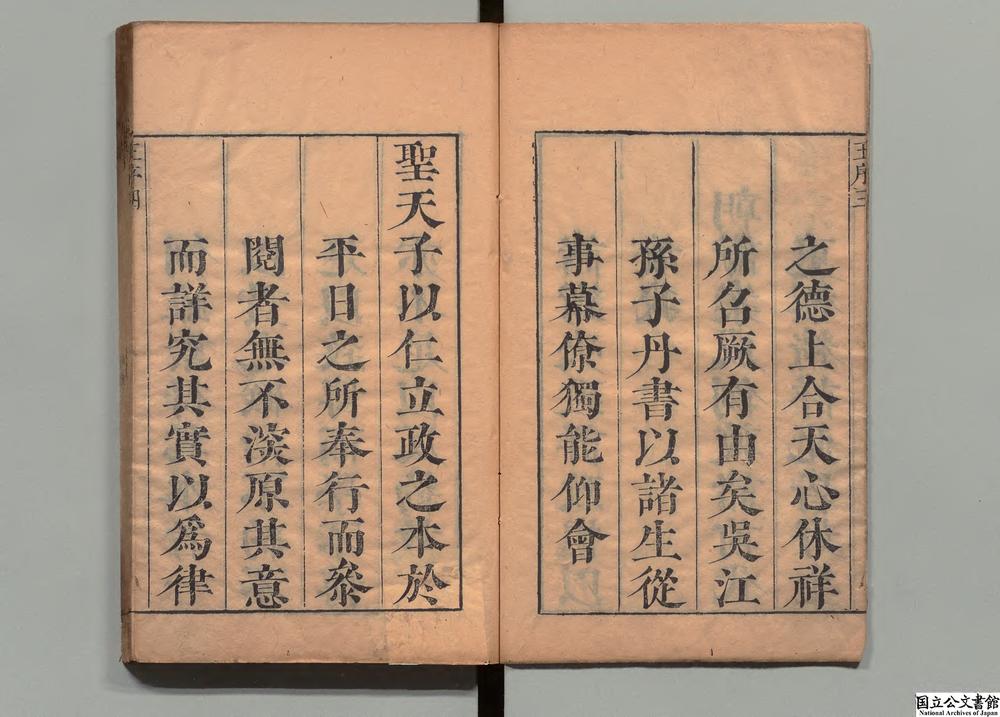 王序三
之德上合天心休祥
所召厥有由矣吳江
孫子丹書以諸生從
事幕僚獨能仰會
聖天子以仁立政之本於
平日之所奉行而叅
閱者無不湥原其意
而詳究其實以爲律
王序四
国立公文書館
National Archives of Japan